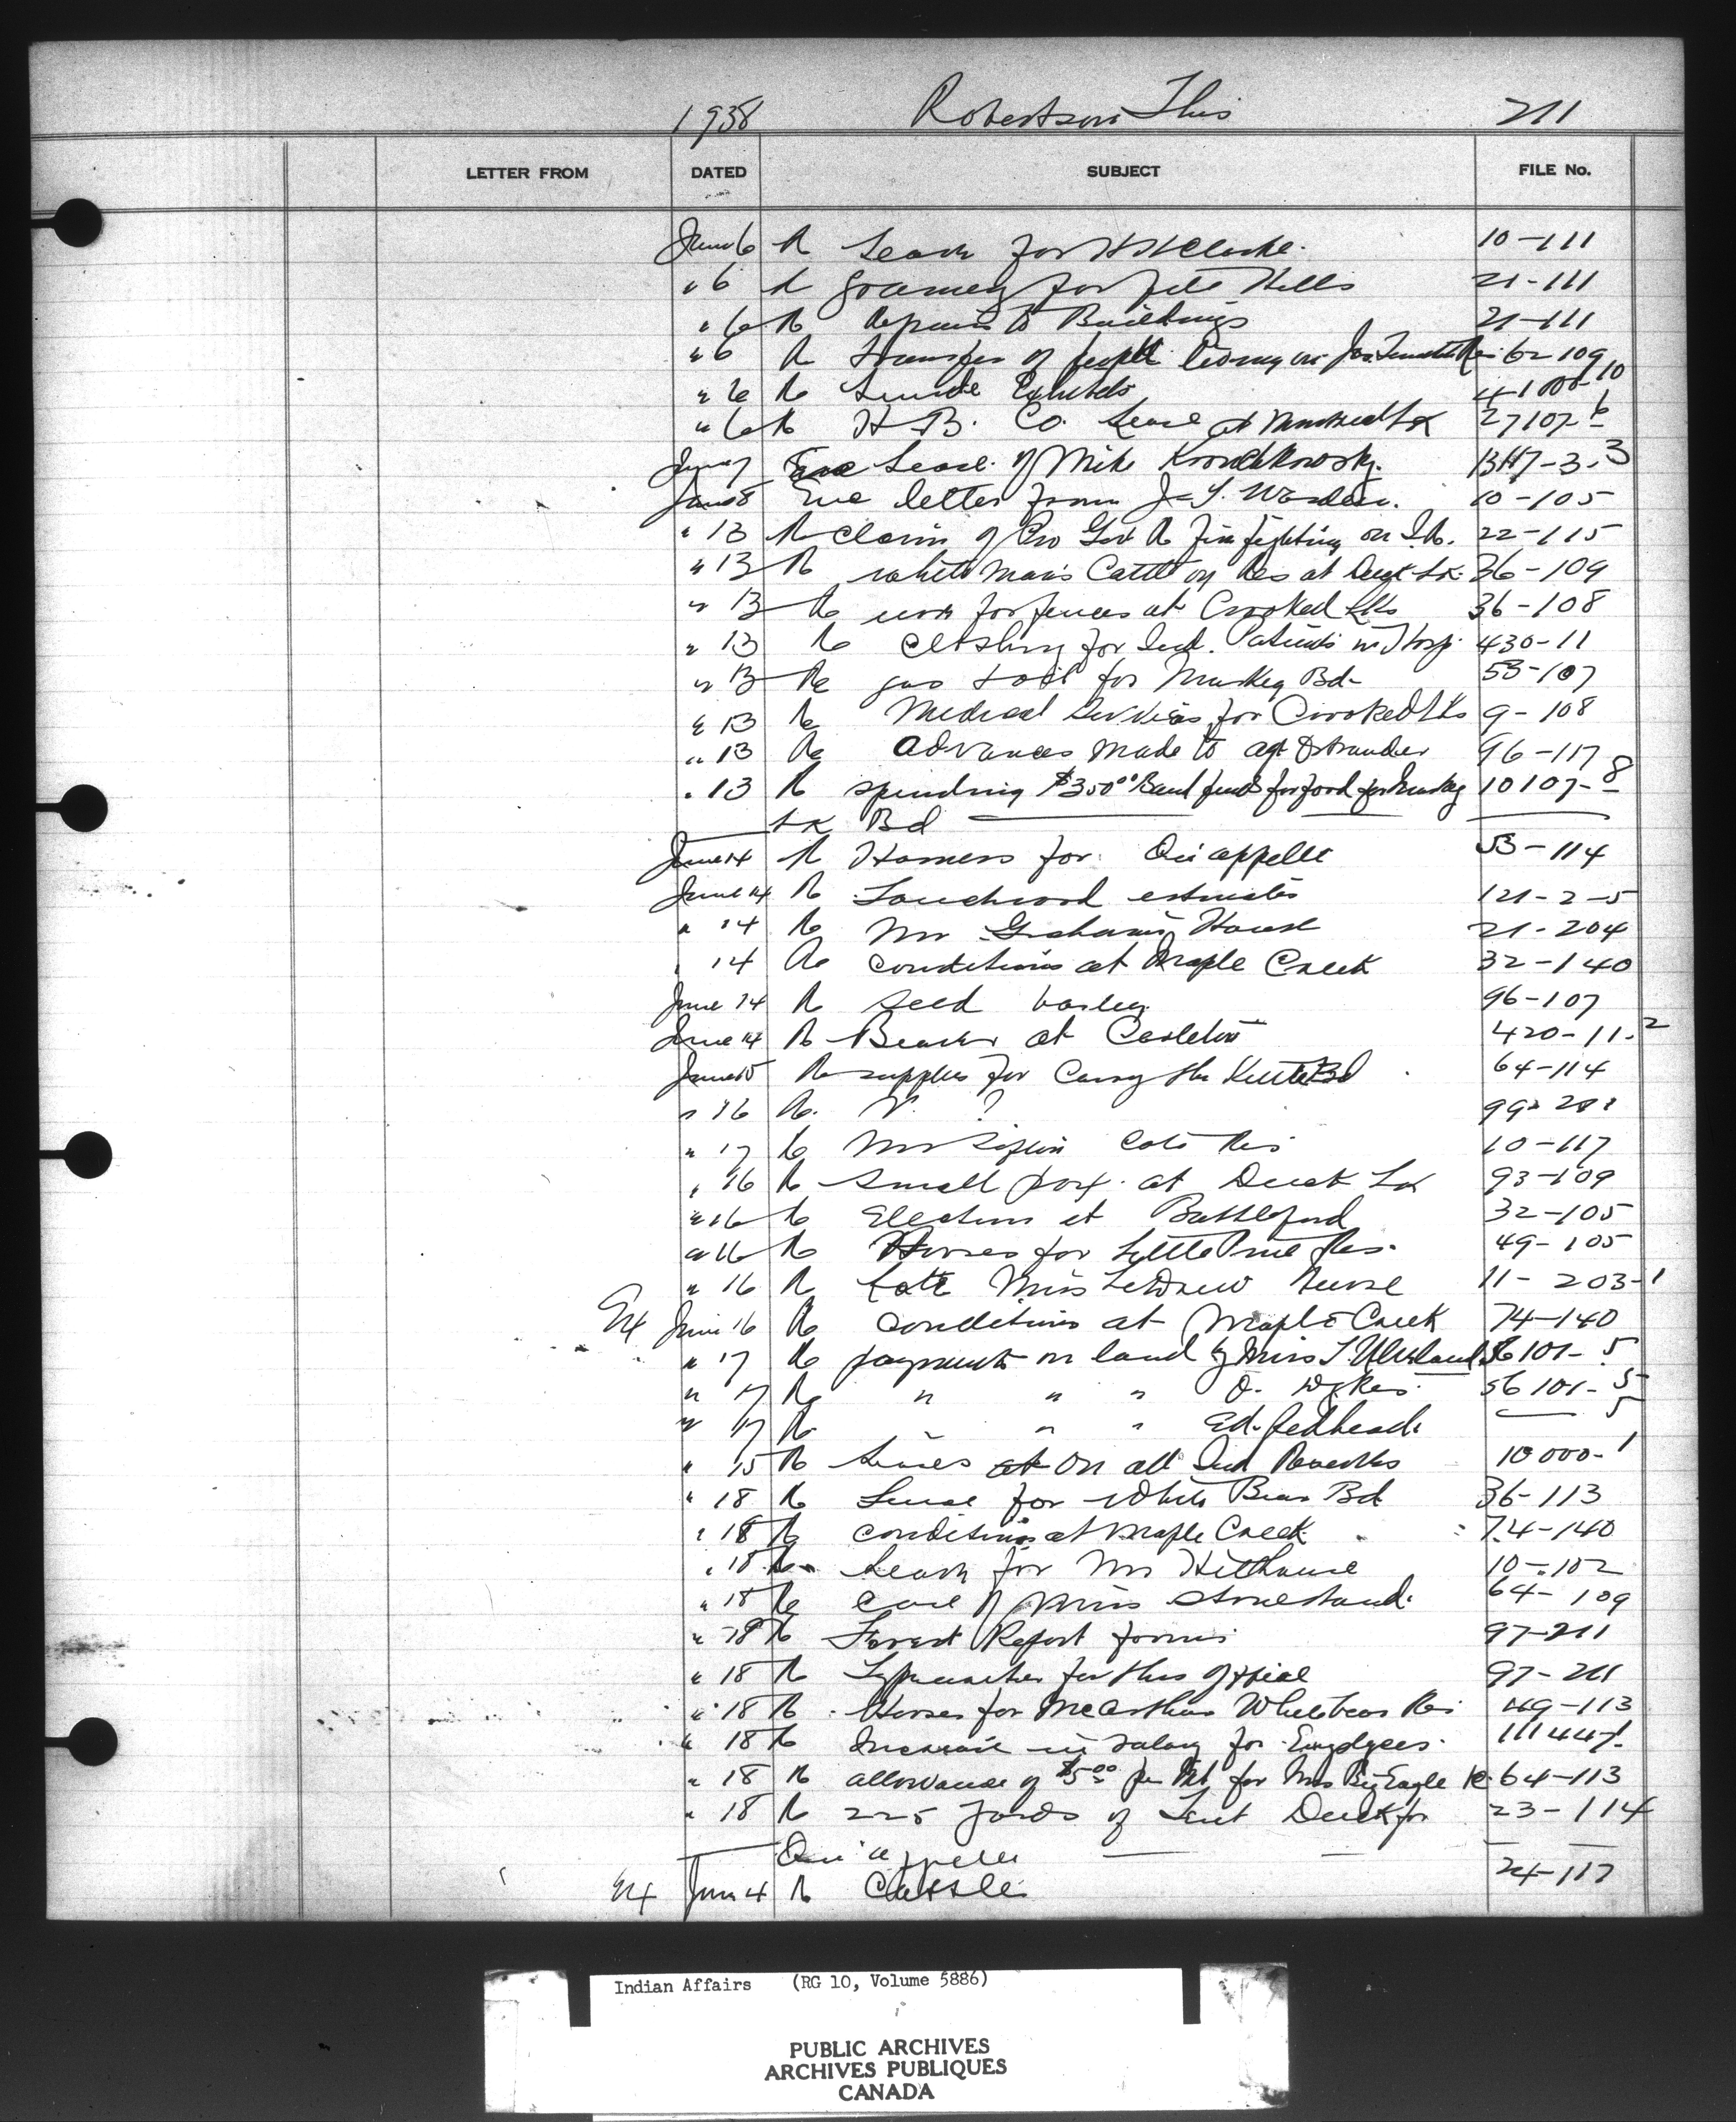 1938 Robertson Thos 211
LETTER FROM DATED SUBJECT FILE No.
June 6 Re Leave for 10-111
" 6 Re for File Hills 21-111
" 6 Re Repairs to Buildings 21-111
" 6 Re Transfer of people living on Res 62-109
" 6 Re Exhibits
" 6 Re H. B. Co. Lease at Montreal Lk 27107-6
June 7 Enc Lease of Mike
June 8 Enc letter from J. L. 10-105
" 13 Re Claim of Pro Gov Re fire fighting on I.R. 22-115
" 13 Re white man's Cattle on Res at Duck Lk. 36-109
" 13 Re iron for fences at Crooked Lks 36-108
" 13 Re clothing for Ind. Patients in Hosp. 430-11
" 13 Re gas & oil for Muskeg Bd 53-107
" 13 Re Medical Services for Crooked Lks 9-108
" 13 Re advances made to agt Ostrander 96-117
" 13 Re spending $350.00 Band funds for food for Muskeg 10107-8
Lk Bd
June 14 Re Harness for Qu'appelle 53-114
June 14 Re Touchwood estimates 121-2-5
" 14 Re Mr Graham's House 21-204
" 14 Re conditions at Maple Creek 32-140
June 14 Re seed barley 96-107
June 14 Re Beaver at Carleton 420-11-2
June 15 Re supplies for Carry the Kettle Bd 64-114
" 16 Re. ?
" 17 Re Mr Cote Res 10-117
" 16 Re Small pox at Duck Lk 93-109
" 16 Re Election at Battleford 32-105
" 16 Re Horses for Little Pine Res. 49-105
" 16 Re late Miss Nurse 11-203-1
Ex June 16 Re conditions at Maple Creek 74-140
" 17 Re payments on land by Miss 56101-5
" 17 Re " " " O. Dykes 56101-5
" 17 Re " " " Ed. Redhead 5
" 15 Re Leases at on all Ind Reserves 10000-1
" 18 Re for White Bear Bd 36-113
" 18 Re conditions at Maple Creek 74-140
" 18 Re Leave for Mr Hillhouse 10-102
" 18 Re care of Miss Stonestand 64-109
" 18 Re Forest Report forms 97-211
" 18 Re Typewriter for this office 97-211
" 18 Re Horses for McArthur Whitebear Res 49-113
" 18 Re Increase in salary for Employees.
" 18 Re allowance of $5.00 per Mt for Mrs Big Eagle 64-113
" 18 Re 225 yards of Tent Duck for 23-114
Qu'appelle
Ex June 4 Re Cattle 24-117
Indian Affairs (RG 10, Volume 5886)
PUBLIC ARCHIVES
ARCHIVES PUBLIQUES
CANADA